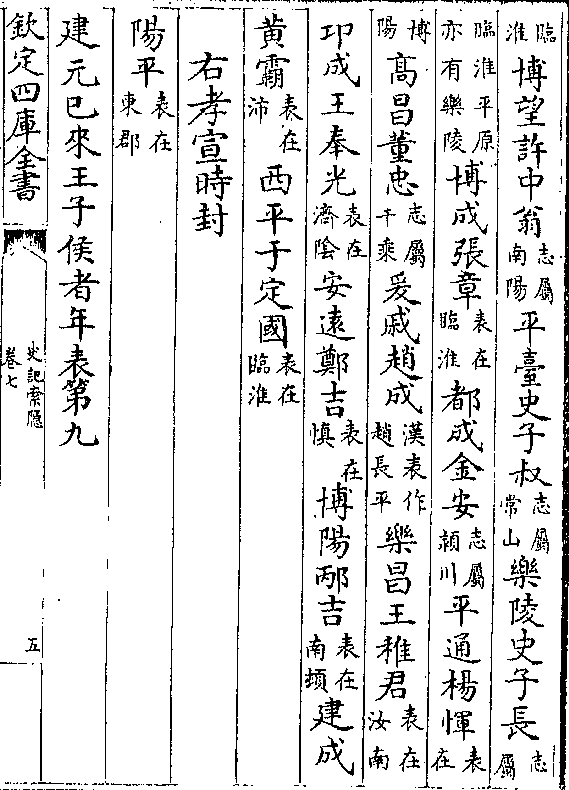 臨淮博望許中翁志屬南陽平臺史子叔志屬常山樂陵史子長志屬
臨淮平原亦有樂陵博成張章表在臨淮都成金安志屬潁川平通楊惲表在
博陽高昌董忠志屬千乘爰戚趙成漢表作趙長平樂昌王稚君表在汝南
卭成王奉光表在濟陰安遠鄭吉表在慎博陽邴吉表在南頓建成
黃霸表在沛西平于定國表在臨淮
右孝宣時封
陽平表在東郡
建元已來王子侯者年表第九
欽定四庫全書
史記索隱
卷七
五